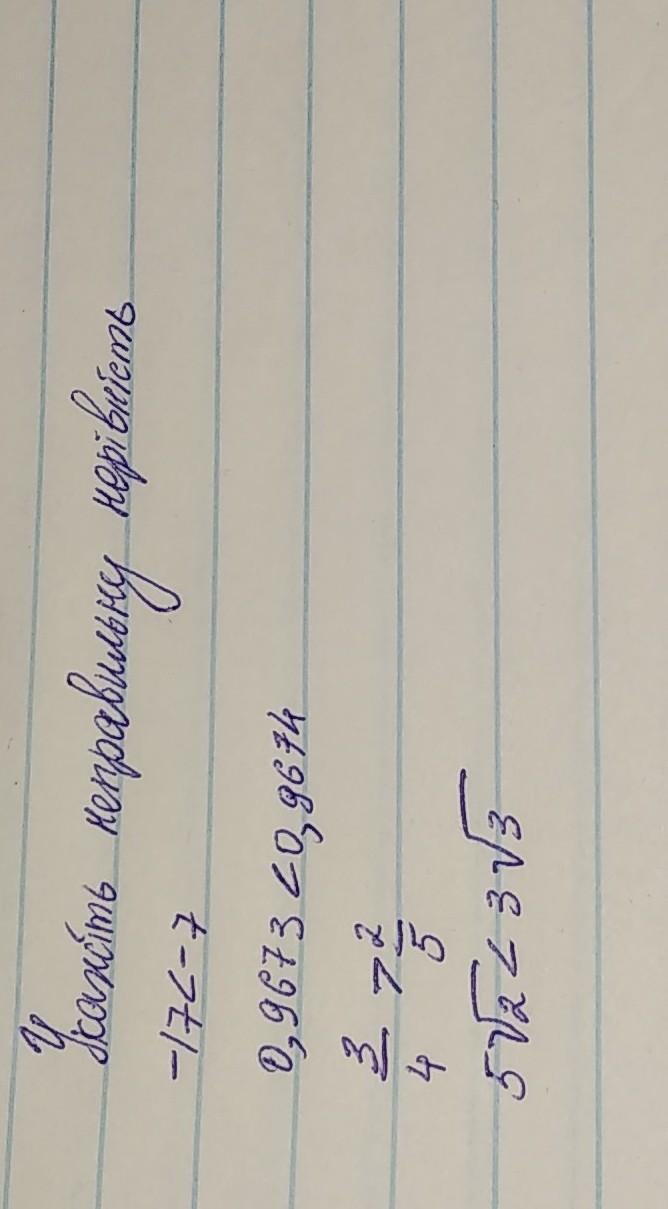 Укажіть неправильну нерівність
-17<-7
0,9673<0,9674
3/4 > 2/5
5√2 < 3√3